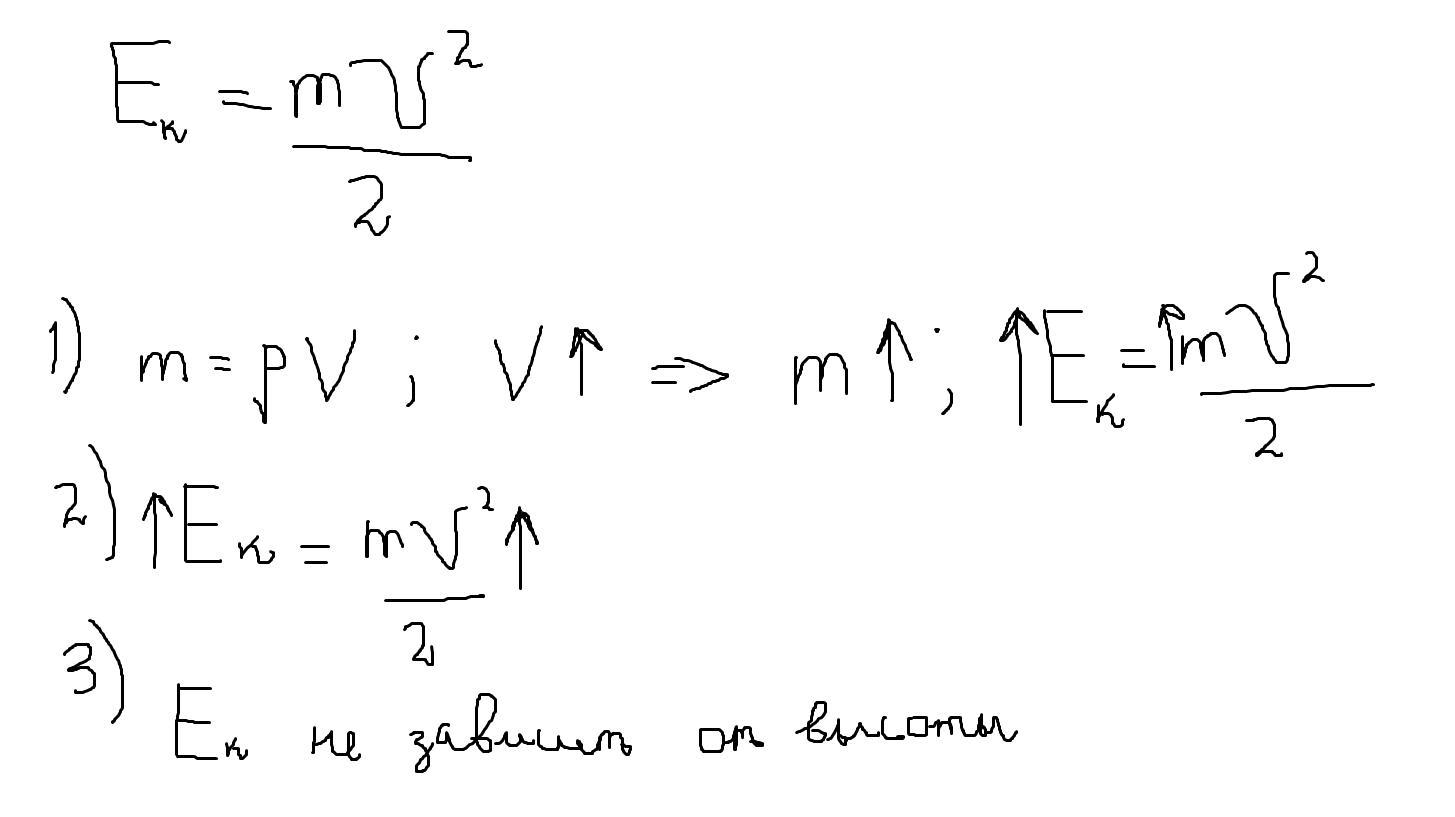 Eк = mv²/2
1) m = ρV ; V↑ => m↑; ↑Eк = ↑mv²/2
2) ↑Eк = mv²↑/2
3) Eк не зависит от высоты